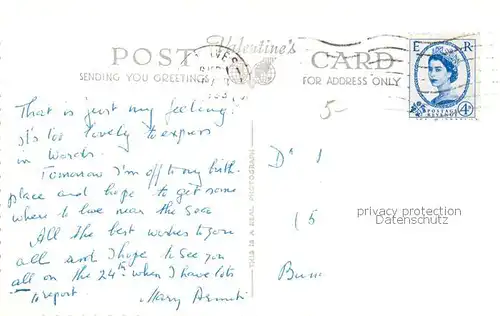 POST Valentine's CARD
SENDING YOU GREETINGS
FOR ADDRESS ONLY
E R
POSTAGE
REVENUE
4D
5-
That is just my feeling!
it's too lovely to express
in words.
Tomorrow I'm off to my birth-
place and hope to get some
where to live near the sea
All the best wishes to you
all and I hope to see you
all on the 24th when I have lots
to report. Mary
THIS IS A REAL PHOTOGRAPH
Dr
(5
privacy protection
Datenschutz